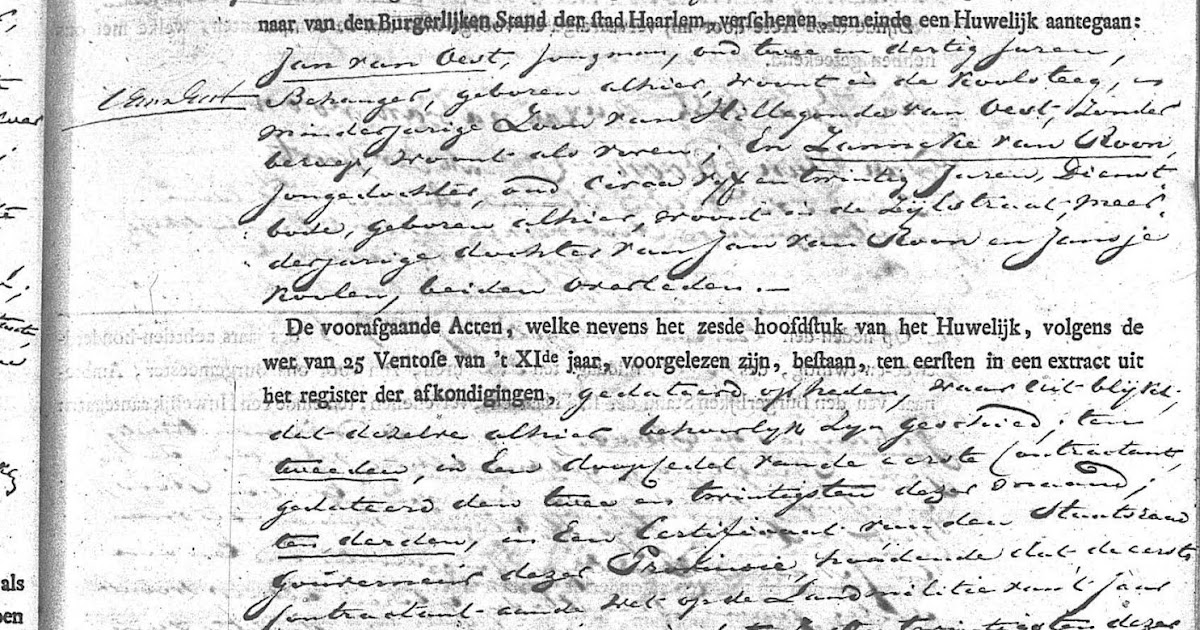 naar van den Burgerlijken Stand der stad Haarlem, verschenen, ten einde een Huwelijk aantegaan:
Jan van Oest, jongman, oud twee en dertig jaren,
Behanger, geboren alhier, woont in de Koolsteeg,
minderjarige Zoon van Hillegonda van Oest, Zonder
beroep, woont als voren; En Zanneke van Roon,
Jongedochter, oud circa vyf en twintig Jaren, Dienst
bode, geboren alhier, woont in de Zijlstraat, meer-
derjarige dochter van Jan van Roon en Jansje
Koolen, beiden overleden.—
De voorafgaande Acten, welke nevens het zesde hoofdstuk van het Huwelijk, volgens de
wet van 25 Ventose van 't XIde jaar, voorgelezen zijn, bestaan, ten eersten in een extract uit
het register der afkondigingen, gedateerd op heden, waar uit blykt,
dat dezelve alhier behoorlyk zyn geschied; ten
tweeden, in Een doopcedel van de eerste Contractant,
gedateerd den twee en twintigsten dezer maand;
ten derden, in Een Certificaat van den Staatsraad
Gouverneur dezer Provincie, houdende dat de eerste
Contractant aan de wet op de Landmilitie van 't jaar
twintigsten dezer
als